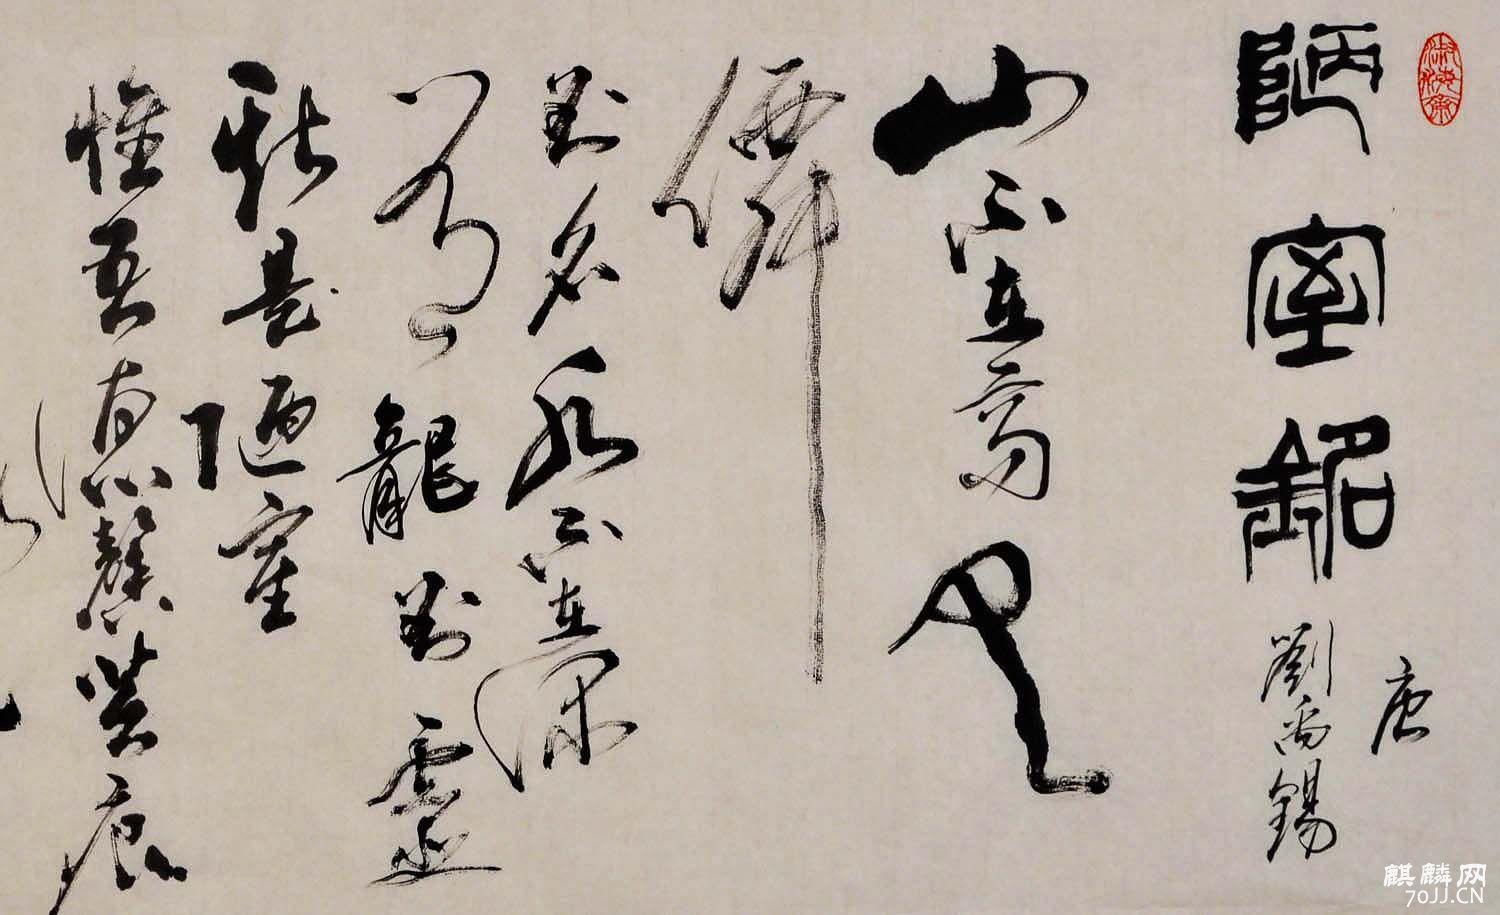 陋室銘
唐
劉禹錫
山不在高有
僊
則名水不在深
有龍則靈
斯是陋室
惟吾德馨苔痕
麒麟网
70JJ.CN